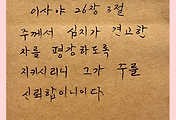 이사야 26장 3절
주께서 심지가 견고한
자를 평강하도록
지키시리니 그가 주를
신뢰함이니이다.